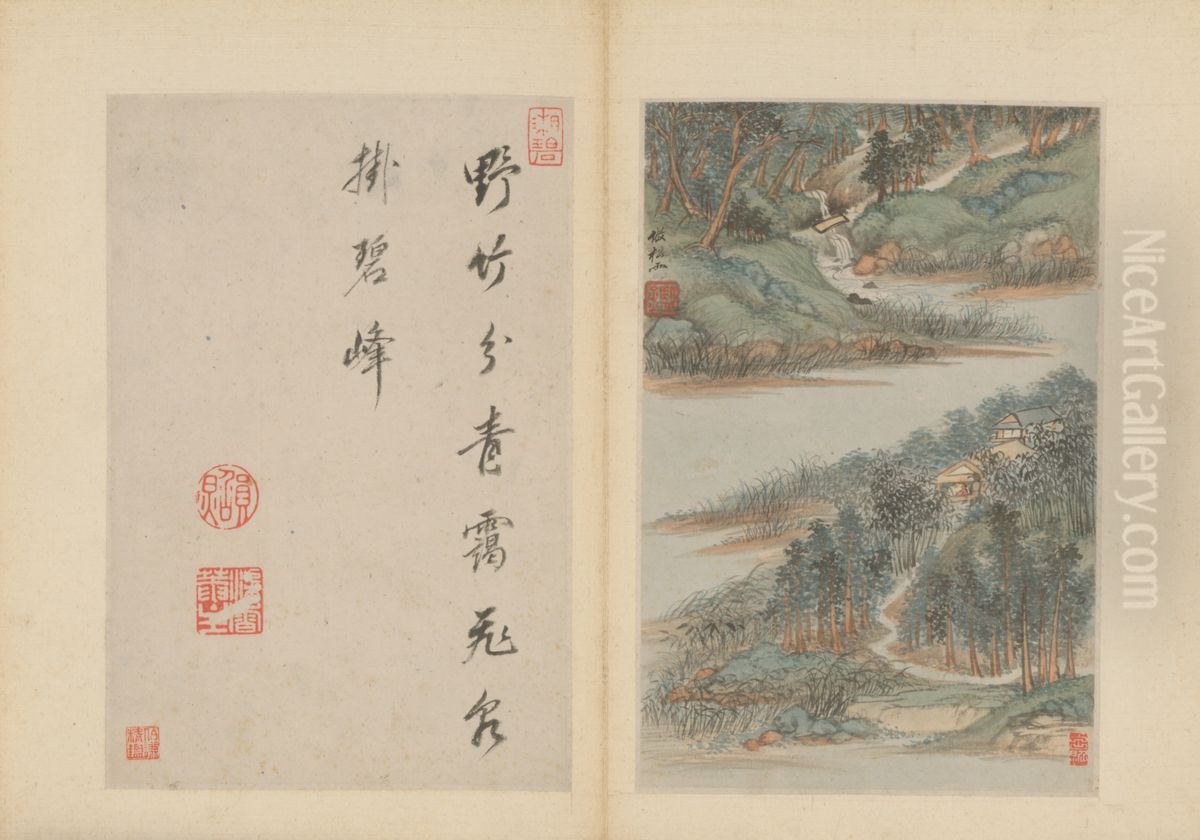 湘碧
野竹分青靄飛泉
掛碧峰
員照
倣松雪
NiceArtGallery.com